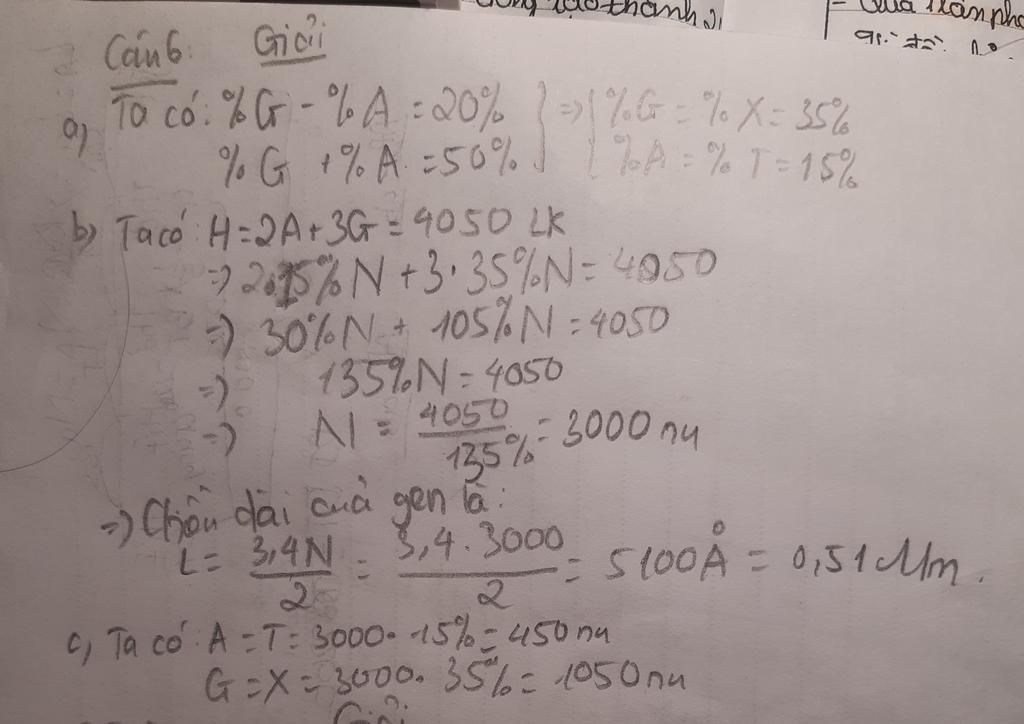 ống tạo thành
Câu 6: Giải
a) Ta có: %G - %A = 20% } => { %G = % X = 35%
%G + %A = 50% } { %A = % T = 15%
b) Ta có: H = 2A + 3G = 4050 LK
=> 2.15%N + 3.35%N = 4050
=> 30%N + 105%N = 4050
=> 135%N = 4050
=> N = 4050 / 135% = 3000 nu
=> Chiều dài của gen là:
L = 3,4N / 2 = 3,4 . 3000 / 2 = 5100Å = 0,51 Mm.
c, Ta có: A = T = 3000. 15% = 450 nu
G = X = 3000. 35% = 1050 nu
Giải